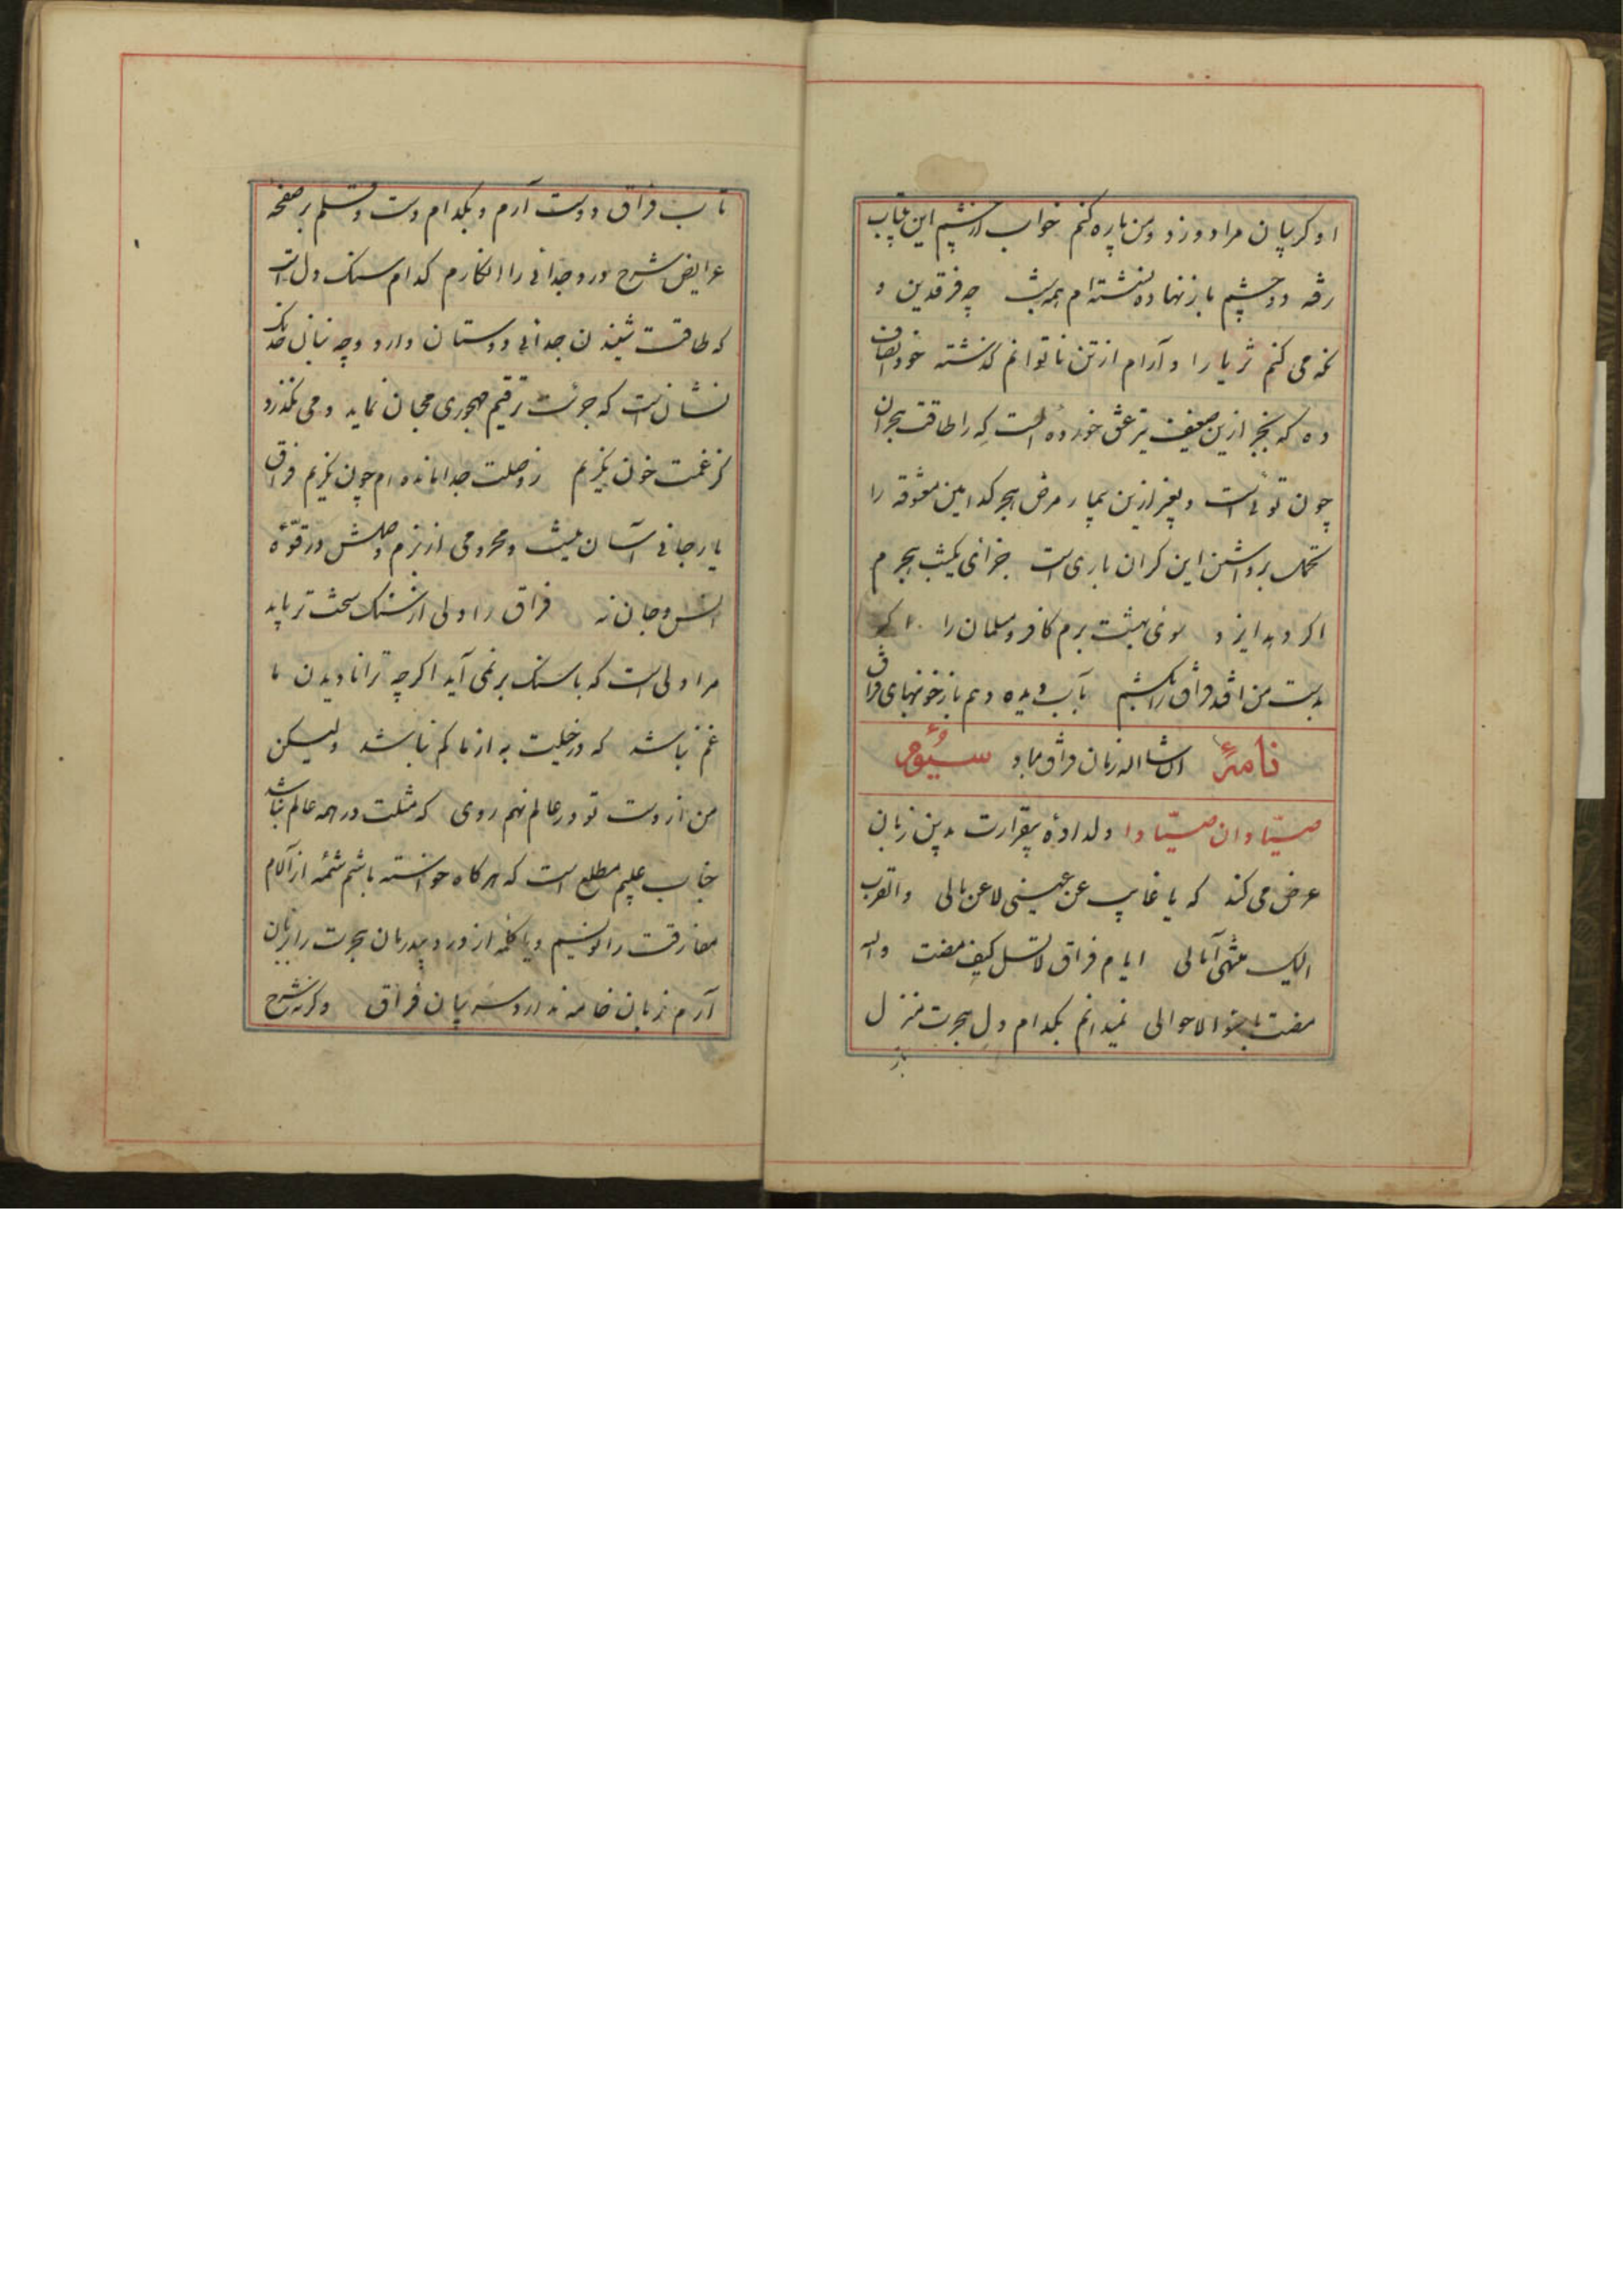 او کریبان مرا دوزد ومن پاره کنم خواب از چشم این بیتاب
رفته دو چشم باز نهاده نشسته‌ام همه شب چه فرقدین و
نکه می کنم ثریا را و آرام از تن ناتوانم کذشته خود انصاف
ده که بجز ازین ضعیف تیر عشق خورده است که را طاقت هجران
چون توئی است و بغیر ازین بیمار مرض هجر کدامین معشوقه را
تحمل برداشتن این کران باری است جزای یکشب هجرم
اکر دهد ایزد سوی بهشت برم کافر و مسلمان را اکر
بدست من افتد فراق را بکشم بآب دیده دهم باز خونبهای فراق
نامهٔ ان شاالله زمان فراق مباد سیُوم
صیّادان صیّادا دلدادهٔ بیقرارت بدین زبان
عرض می کند که یا غایب عن عینی لا عن بالی والقرب
الیک منتهی آمالی ایام فراق لا تسل کیف مضت والله
مضت باسؤالاحوالی نمیدانم بکدام دل هجرت منزل
تاب فراق دوست آرم و بکدام دست وقلم بر صفحه
عرایض شرح درد جدائی را انکارم کدام سنک دل است
که طاقت شنیدن جدائی دوستان دارد وچه بنان خدنک
نشان است که جرئت ترقیم مهجوری محبان نماید و می نکذرد
کز غمت خون نکریم ز وصلت جدا مانده‌ام چون نکریم فراق
یار جانی آسان نیست ومحرومی از بزم وصلش در قوّهٔ
انس وجان نه فراق را دلی از سنک سخت تر باید
مرا دلی است که با سنک بر نمی آید اکرچه ترا نادیدن ما
غم نباشد که در خیلت به از ما کم نباشد ولیکن
من از دست تو در عالم نهم روی که مثلت در همه عالم نباشد
جناب علیم مطلع است که هر کاه خواسته باشم شمّهٔ از آلام
مفارقت را نویسم و یا کلمهٔ از درد بیدرمان هجرت را بزبان
آرم زبان خامه ندارد سر بیان فراق وکرنه شرح